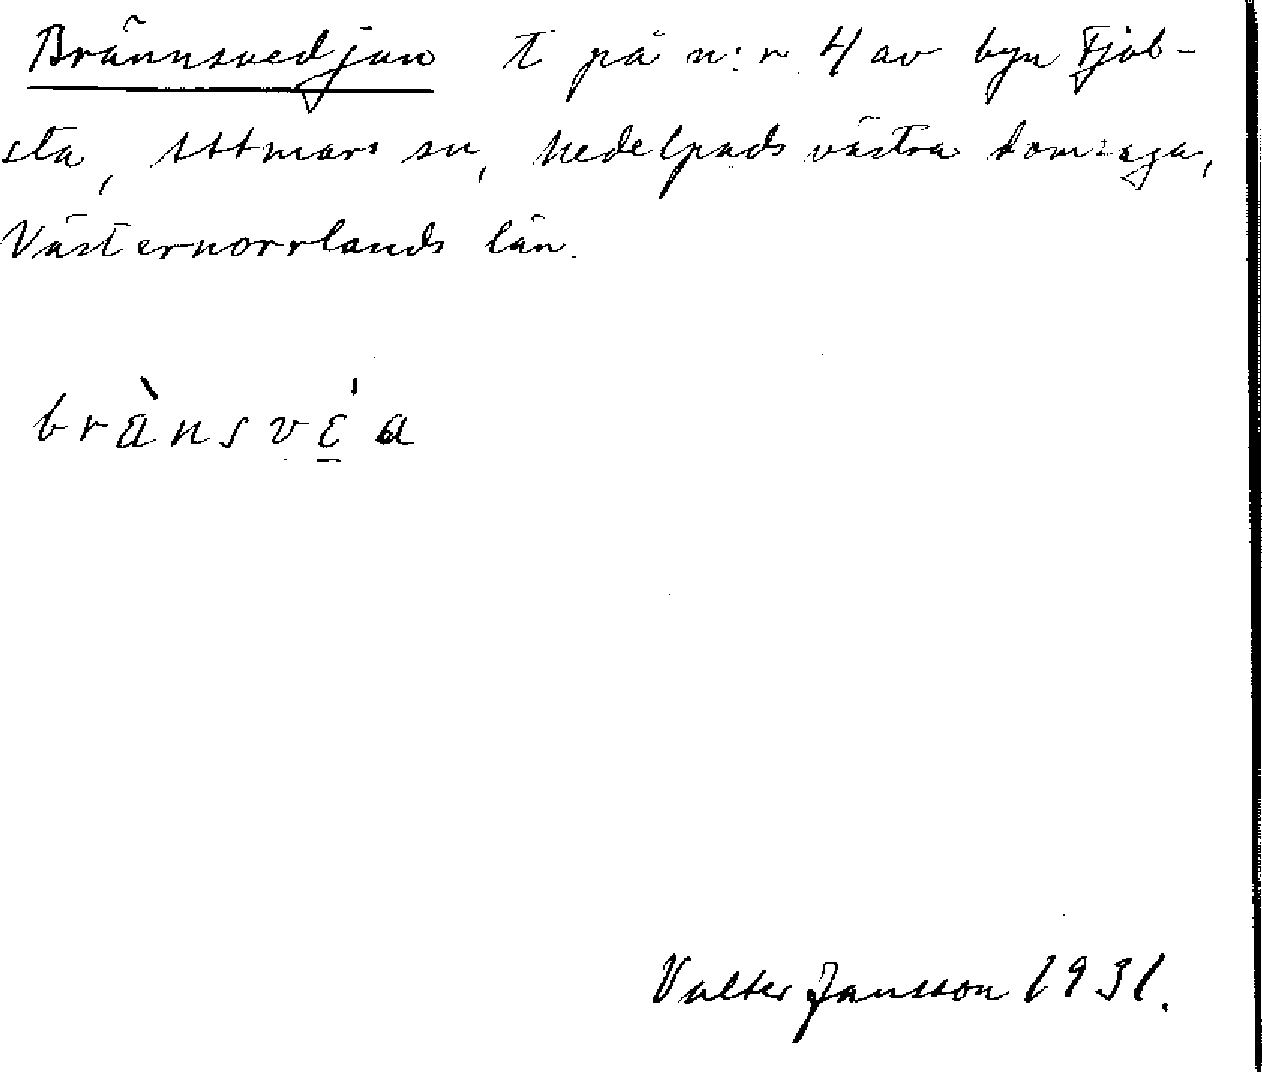 Brännsvedjan t på n:r 4 av byn Fjöl-
sta, Attmars sn, Medelpads västra domsaga,
Västernorrlands län.
bränsvɛa
Valter Jansson 1931.